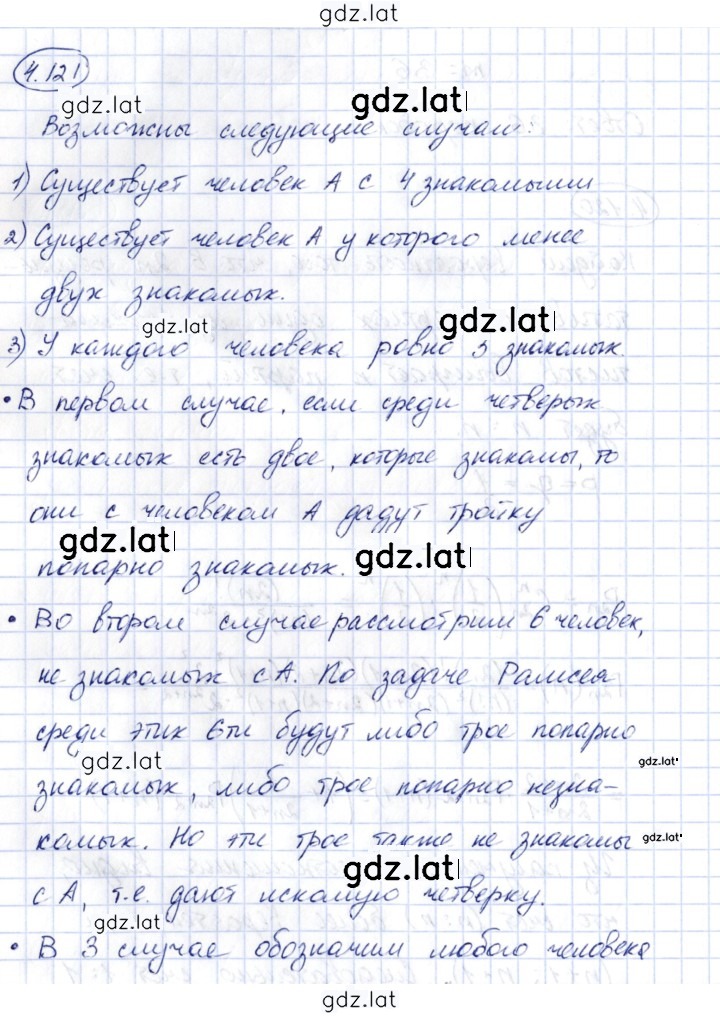 gdz.lat
4.121
gdz.lat gdz.lat
Возможны следующие случаи:
1) Существует человек А с 4 знакомыми
2) Существует человек А у которого менее
двух знакомых.
gdz.lat gdz.lat
3) У каждого человека ровно 3 знакомых.
• В первом случае, если среди четверых
знакомых есть двое, которые знакомы, то
они с человеком А дадут тройку
gdz.lat gdz.lat
попарно знакомых.
• Во втором случае рассмотрим 6 человек,
не знакомых с А. По задаче Рамсея
среди этих 6ти будут либо трое попарно
gdz.lat gdz.lat
знакомых, либо трое попарно незна-
комых. Но эти трое также не знакомы
gdz.lat
с А, т.е. дают искомую четверку.
gdz.lat gdz.lat
• В 3 случае обозначим любого человека
gdz.lat